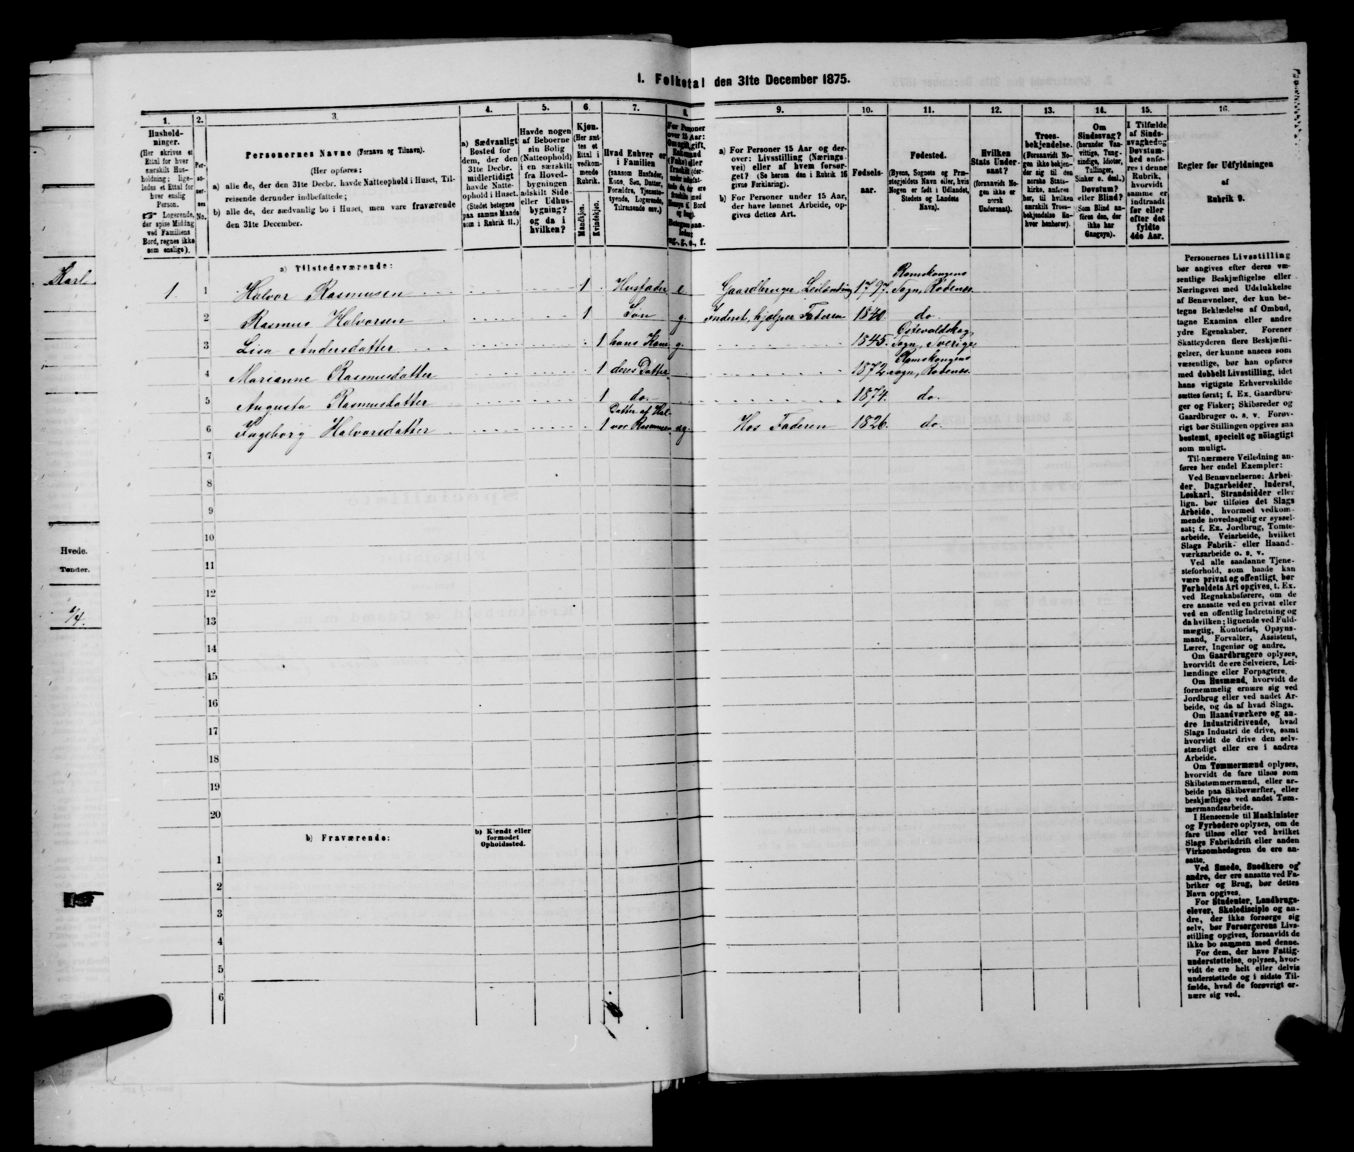 1. Folketal den 31te December 1875.
1. 2. 3. 4. 5. 6. 7. 8. 9. 10. 11. 12. 13. 14. 15. 16.
Hushold-
ninger.
(Her skrives et
Ettal for hver
særskilt Hus-
holdning; lige-
ledes et Ettal for
hver enslig
Person.
☞ Logerende,
der spise Middag
ved Familiens
Bord, regnes ikke
som enslige).
Per-
No.
Personernes Navne (Fornavn og Tilnavn).
(Her opføres:
a) alle de, der den 31te Decbr. havde Natteophold i Huset, Til-
reisende derunder indbefattede;
b) alle de, der sædvanlig bo i Huset, men vare fraværende
den 31te December.
a) Sædvanligt
Bosted for
dem, der den
31te Decbr.
midlertidigt
havde Natte-
ophold i Huset.
(Stedet betegnes
paa samme Maade
som i Rubrik 11.)
Havde nogen
af Beboerne
sin Bolig
(Natteophold)
i en særskilt
fra Hoved-
bygningen
adskilt Side-
eller Udhus-
bygning?
og da i
hvilken?
Kjøn.
(Her sæt-
tes et
Ettal i
vedkom-
mende
Rubrik.
Mandkjøn.
Kvindekjøn.
Hvad Enhver er
i Familien
(saasom Husfader,
Kone, Søn, Datter,
Forældre, Tjeneste-
tyende, Logerende,
Tilreisende osv.)
For Personer
over 15 Aar:
a) For Personer 15 Aar og der-
over: Livsstilling (Nærings-
vei) eller af hvem forsør-
get? (Se herom den i Rubrik 16
givne Forklaring).
b) For Personer under 15 Aar,
der have lønnet Arbeide, op-
gives dettes Art.
Fødsels-
aar.
Fødested.
(Byens, Sognets og Præ-
stegjeldets Navn eller, hvis
Nogen er født i Udlandet,
Stedets og Landets
Navn).
Hvilken
Stats Under-
saat?
(forsaavidt No-
gen ikke er
norsk
Undersaat).
Troes-
bekjendelse.
(Forsaavidt No-
gen ikke bekjen-
der sig til den
norske Stats-
kirke, anføres
her, til hvilken
særskilt Troes-
bekjendelse En-
hver henhører).
Om
Sindssvag?
(herunder Vaa-
vittige, Tung-
sindige, Idioter,
Tullinger,
Sinker o. desl.)
Døvstum?
eller Blind?
Som Blind an-
føres den, der
ikke har
Gangsyn).
I Tilfælde
af Sinds-
svaghed og
Døvstum-
hed anfø-
res i denne
Rubrik,
hvorvidt
samme er
indtraadt
før eller
efter det
fyldte
4de Aar.
Regler for Udfyldningen
af
Rubrik 9.
a) Tilstedeværende:
1 1 Halvor Rasmusen 1 Husfader e Gaardbruger Leilænding 1797. Romskogens Sogn, Rødenes
2 Rasmus Halvorsen 1 Søn g. Inderst, hjælper Faderen 1840. do.
3 Lisa Andersdatter 1 hans Kone g. 1845. Sogn, Sverige
4 Marianne Rasmusdatter 1 deres Datter 1872 Romskogens Sogn, Rødenes.
5 Augusta Rasmusdatter 1 do. 1874. do.
6 Ingeborg Halvorsdatter 1 Datter af Hal- vor Rasmusen ug. Hos Faderen 1826. do.
7
8
9
10
11
12
13
14
15
16
17
18
19
20
b) Fraværende:
b) Kjendt eller
formodet
Opholdssted.
1
2
3
4
5
6
Personernes Livsstilling
bør angives efter deres væ-
sentlige Beskjæftigelse eller
Næringsvei med Udelukkelse
af Benævnelser, der kun be-
tegne Beklædelse af Ombud,
tagne Examina eller andre
ydre Egenskaber. Forener
Skatteyderen flere Beskjæfti-
gelser, der kunne ansees som
væsentlige, bør han opføres
med dobbelt Livsstilling, idet
hans vigtigste Erhvervskilde
sættes først; f. Ex. Gaardbru-
ger og Fisker; Skibsreder og
Gaardbruger o. s. v. Forøv-
rigt bør Stillingen opgives saa
bestemt, specielt og nöiagtigt
som muligt.
Til nærmere Veiledning an-
føres her endel Exempler:
Ved Benævnelserne: Arbei-
der, Dagarbeider, Inderst,
Løskarl, Strandsidder eller
lign. bør tilføies det Slags
Arbeide, hvormed vedkom-
mende hovedsagelig er syssel-
sat; f. Ex. Jordbrug, Tomte-
arbeide, Veiarbeide, hvilket
Slags Fabrik- eller Haand-
værksarbeide o. s. v.
Ved alle saadanne Tjene-
steforhold, som baade kan
være privat og offentligt, bør
Forholdets Art opgives, t. Ex.
ved Regnskabsførere, om de
ere ansatte ved en privat eller
ved en offentlig Indretning og
da hvilken; lignende ved Fuld-
mægtig, Kontorist, Opsyns-
mand, Forvalter, Assistent,
Lærer, Ingeniør og andre.
Om Gaardbrugere oplyses,
hvorvidt de ere Selveiere, Lei-
lændinge eller Forpagtere.
Om Husmænd, hvorvidt de
fornemmelig ernære sig ved
Jordbrug eller ved andet Ar-
beide, og da af hvad Slags.
Om Haandværkere og an-
dre Industridrivende, hvad
Slags Industri de drive, samt
hvorvidt de drive den selv-
stændigt eller ere i andres
Arbeide.
Om Tømmermænd oplyses,
hvorvidt de fare tilsøs som
Skibstømmermænd, eller ar-
beide paa Skibsværfter, eller
beskjæftiges ved andet Tøm-
mermandsarbeide.
I Henseende til Maskinister
og Fyrbødere oplyses, om de
fare tilsøs eller ved hvilket
Slags Fabrikdrift eller anden
Virksomhedsgren de ere an-
satte.
Ved Smede, Snedkere og
andre, der ere ansatte ved Fa-
briker og Brug, bør dettes
Navn opgives.
For Studenter, Landbrugs-
elever, Skoledisciple og an-
dre, der ikke forsørge sig
selv, bør Forsørgerens Livs-
stilling opgives, forsaavidt de
ikke bo sammen med denne.
For dem, der have Fattig-
understøttelse, oplyses, hvor-
vidt de ere helt eller delvis
understøttede og i sidste Til-
fælde, hvad de forøvrigt er-
nære sig ved.
Hvede.
Tønder.
1/4.